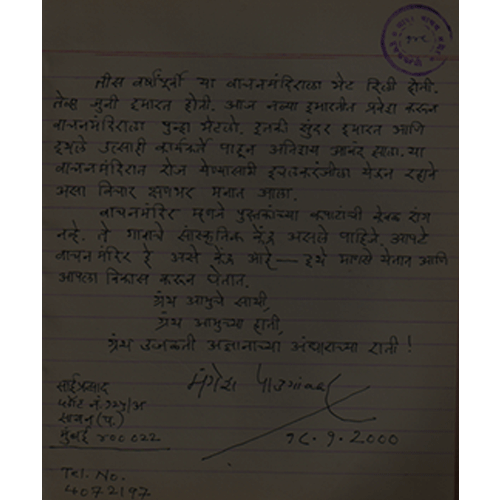 तीस वर्षांपूर्वी या वाचनमंदिराला भेट दिली होती.
तेव्हा जुनी इमारत होती. आज नव्या इमारतीत प्रवेश करून
वाचनमंदिराला पुन्हा भेटलो. इतकी सुंदर इमारत आणि
इथले उत्साही कार्यकर्ते पाहून अतिशय आनंद झाला. या
वाचनमंदिरात रोज येण्यासाठी इचलकरंजीला येऊन रहावे
असा विचार क्षणभर मनात आला.
वाचनमंदिर म्हणजे पुस्तकांच्या कपाटांची केवळ रांग
नव्हे. ते गावाचे सांस्कृतिक केंद्र असले पाहिजे. आपले
वाचनमंदिर हे असे केंद्र आहे — इथे माणसे येतात आणि
आपला विकास करून घेतात.
ग्रंथ आमुचे साथी,
ग्रंथ आमुच्या हाती,
ग्रंथ उजळती अज्ञानाच्या अंधाराच्या राती !
मंगेश पाडगांवकर
साईप्रसाद
प्लॉट नं. १२५/अ
सायन (प.)
मुंबई ४०० ०२२
१८.१.2000
Tel. No.
4072197